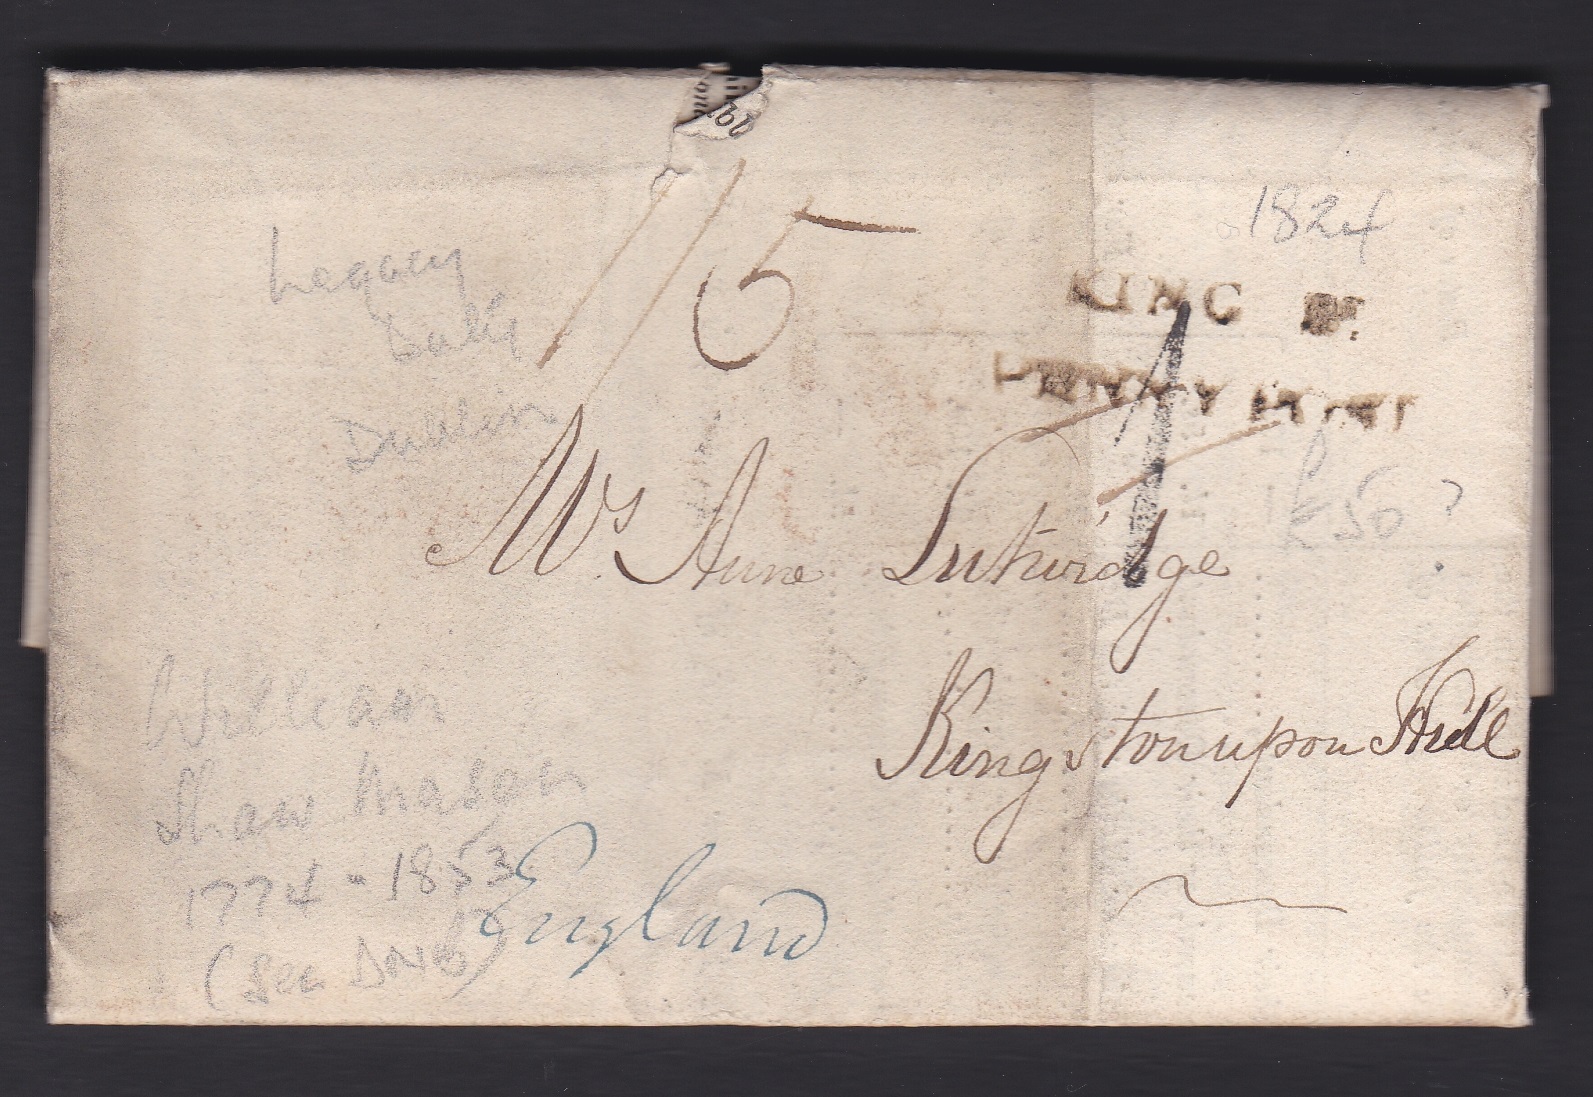 1824
Legacy
Duty
Dublin
1/5
KING St.
PENNY POST
1
£50?
Mrs. Anne Lutwidge
Kingston upon Hull
William
Shaw Mason
1774 - 1853
(see DNB)
England